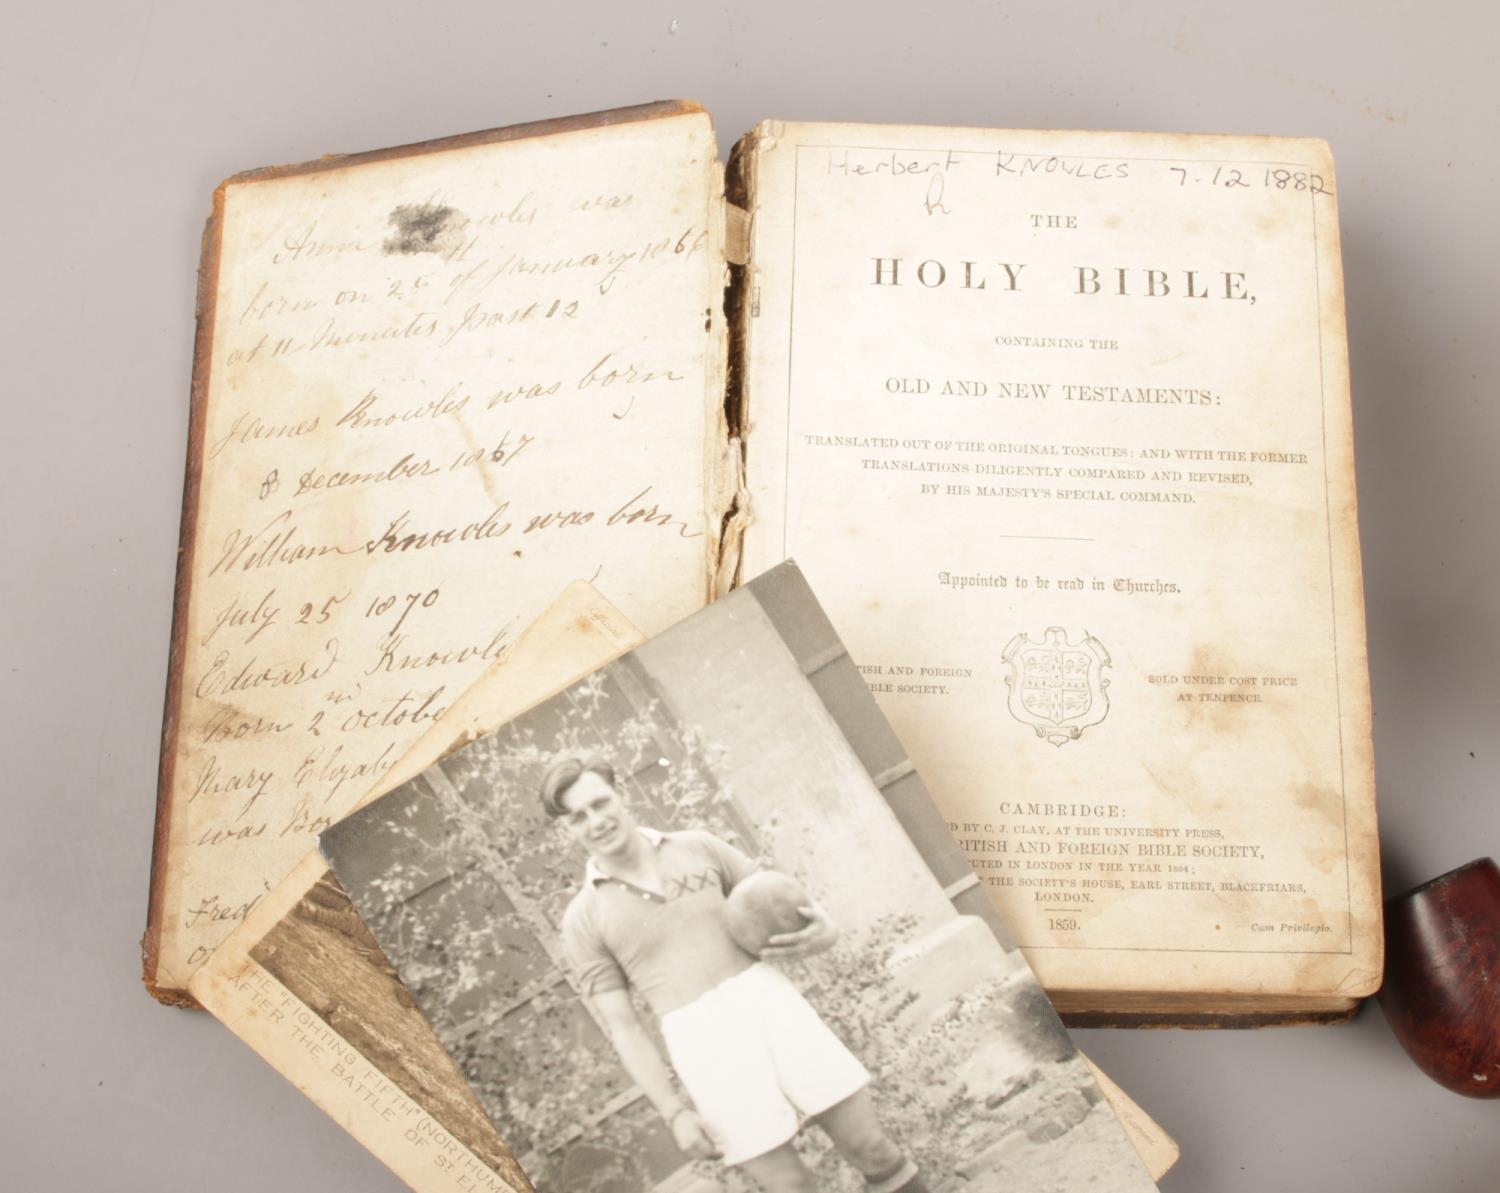 Annie Knowles was
born on 25 of January 1866
at 11 Minutes Past 12
James Knowles was born
8 December 1867
William Knowles was born
July 25 1870
Edward Knowle
Born 2 octobe
Mary Elyzab
was Bor
Fred
Herbert KNOWLES 7.12 1882
THE
HOLY BIBLE,
CONTAINING THE
OLD AND NEW TESTAMENTS:
TRANSLATED OUT OF THE ORIGINAL TONGUES: AND WITH THE FORMER
TRANSLATIONS DILIGENTLY COMPARED AND REVISED,
BY HIS MAJESTY'S SPECIAL COMMAND.
Appointed to be read in Churches.
TISH AND FOREIGN
BLE SOCIETY.
SOLD UNDER COST PRICE
AT TENPENCE.
CAMBRIDGE:
D BY C. J. CLAY, AT THE UNIVERSITY PRESS,
RITISH AND FOREIGN BIBLE SOCIETY,
TUTED IN LONDON IN THE YEAR 1804;
THE SOCIETY'S HOUSE, EARL STREET, BLACKFRIARS,
LONDON.
1859.
Cum Privilegio.
XX
THE "FIGHTING FIFTH" (NORTHUM
AFTER THE BATTLE OF ST. EL